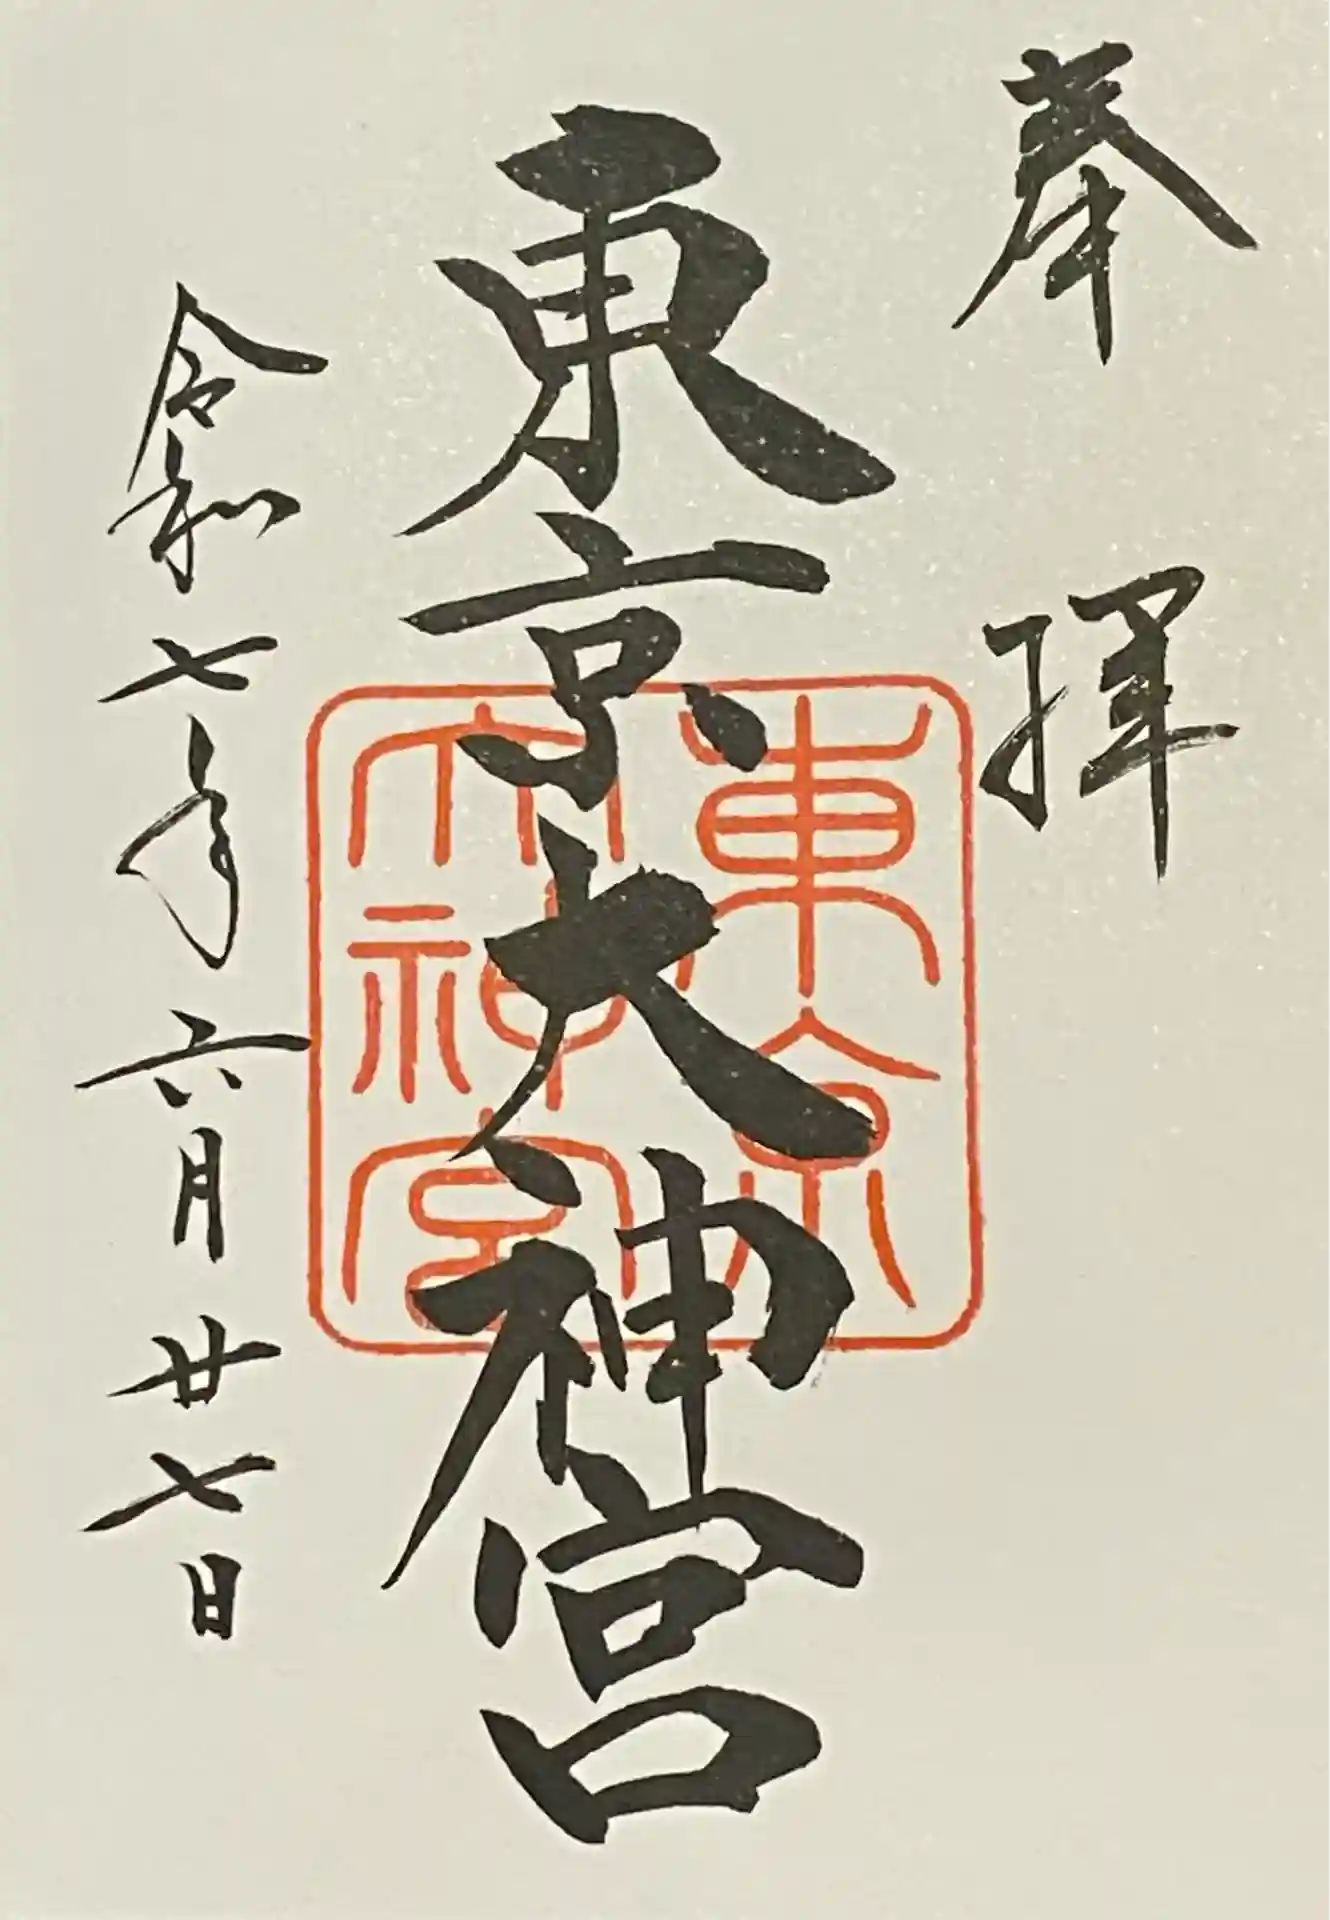 奉拝
東京大神宮
東京
大神宮
令和七年六月廿七日